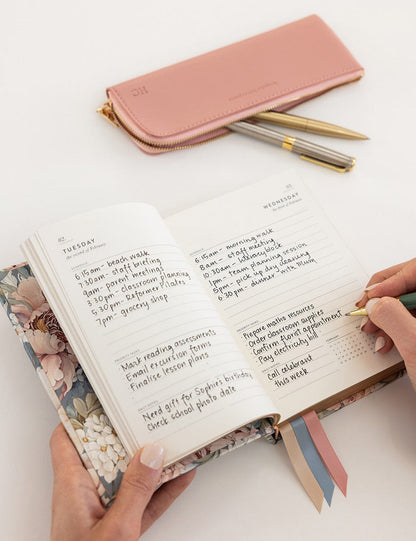 HC
02
TUESDAY
the second of February
6:15am - beach walk
7:30am - staff briefing
9am - parent meetings
3:30pm - classroom planning
5:30pm - Reformer Pilates
7pm - grocery shop
Mark reading assessments
Email excursion forms
Finalise lesson plans
Need gift for Sophie's birthday
Check school photo date
03
WEDNESDAY
the third of February
6:15am - morning walk
8am - staff meeting
10:30am - literacy block
1pm - team planning session
5pm - pick up dry cleaning
6:30pm - dinner with Mum
Prepare maths resources
Order classroom supplies
Confirm florist appointment
Pay electricity bill
Call celebrant
this week